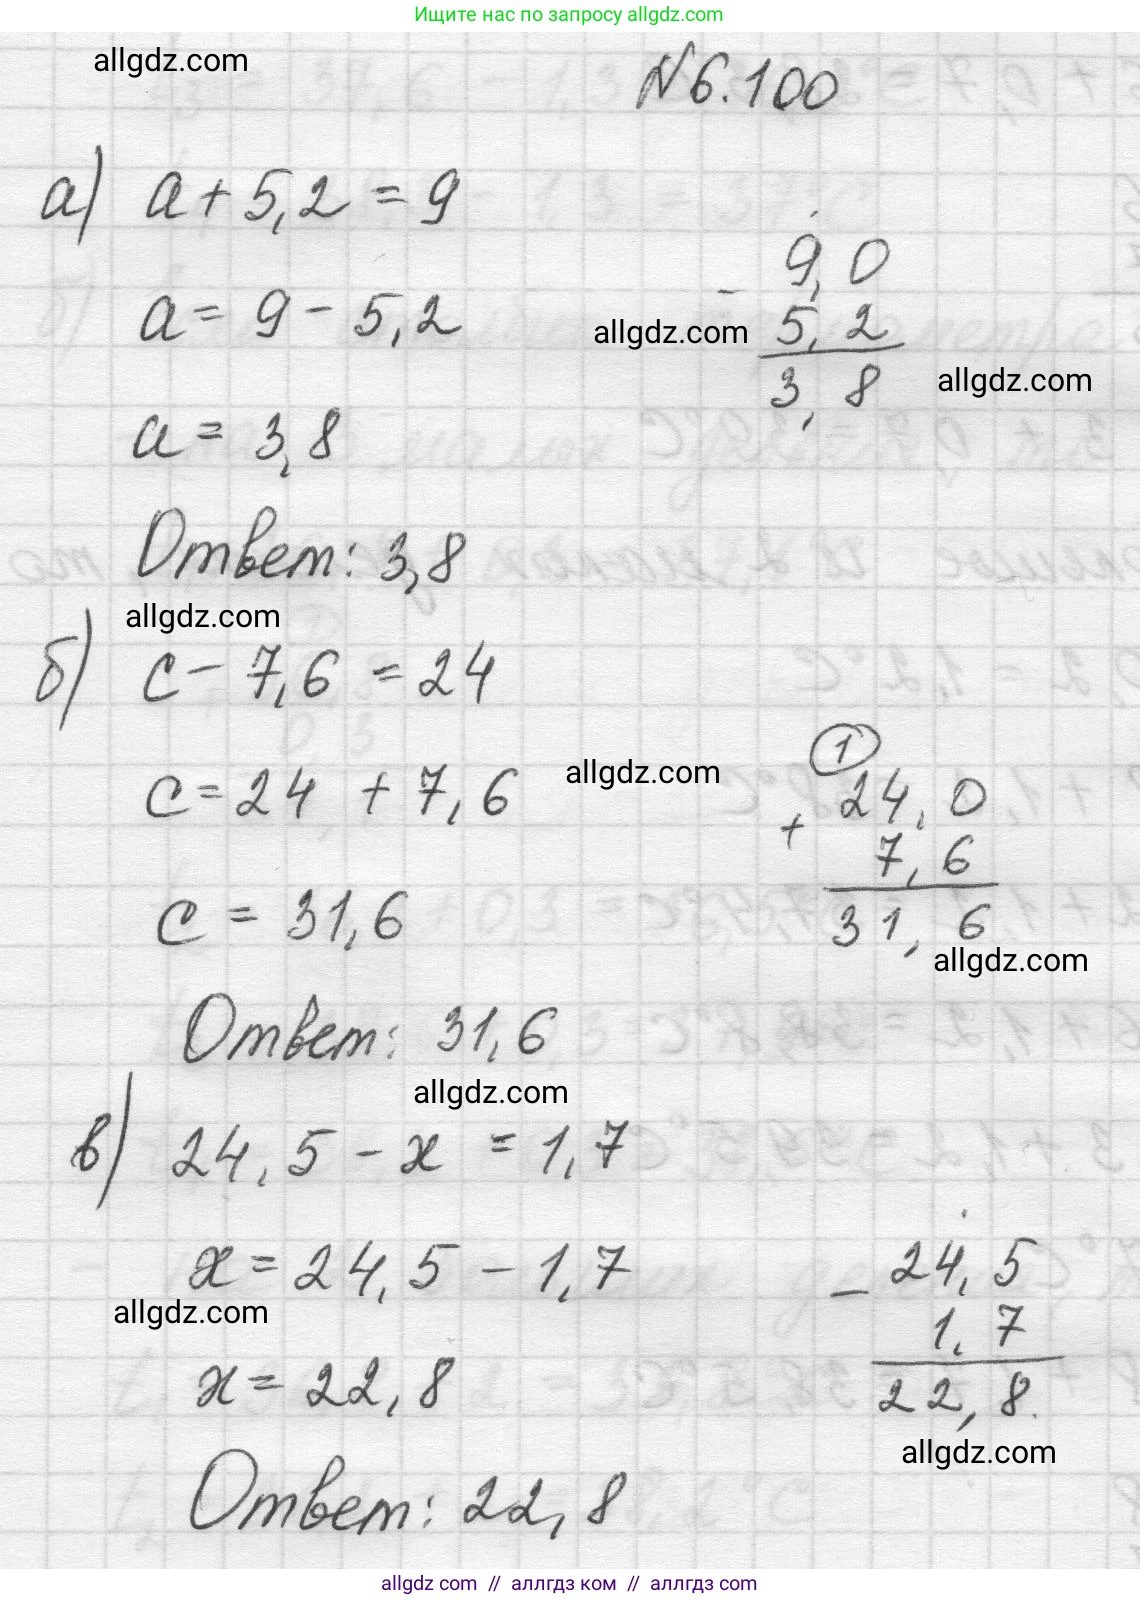 Ищите нас по запросу allgdz.com
allgdz.com
№6.100
а) a + 5,2 = 9
a = 9 - 5,2
a = 3,8
9,0
- 5,2
3,8
allgdz.com
allgdz.com
Ответ: 3,8
allgdz.com
б) c - 7,6 = 24
c = 24 + 7,6
c = 31,6
allgdz.com
1
24,0
+ 7,6
31,6
allgdz.com
Ответ: 31,6
allgdz.com
в) 24,5 - x = 1,7
x = 24,5 - 1,7
allgdz.com
x = 22,8
24,5
- 1,7
22,8.
allgdz.com
Ответ: 22,8
allgdz com // аллгдз ком // allgdz com